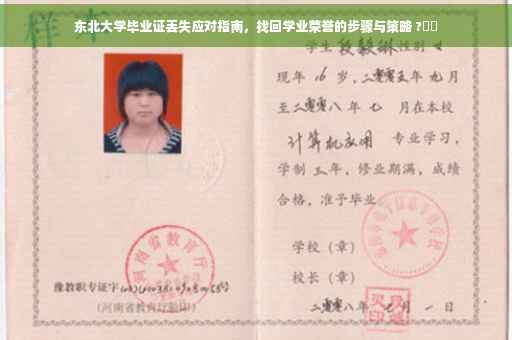 东北大学毕业证丢失应对指南，找回学业荣誉的步骤与策略？
样本
学生 段毅琳 性别 女
现年 16 岁，二零零五年 九月
至二零零八年 七 月在本校
计算机应用 专业学习，
学制 三 年，修业期满，成绩
合格，准予毕业
学校（章）
校长（章）
二零零八年 七 月 一 日
河南省教育厅
豫教职专证字
（河南省教育厅验印）